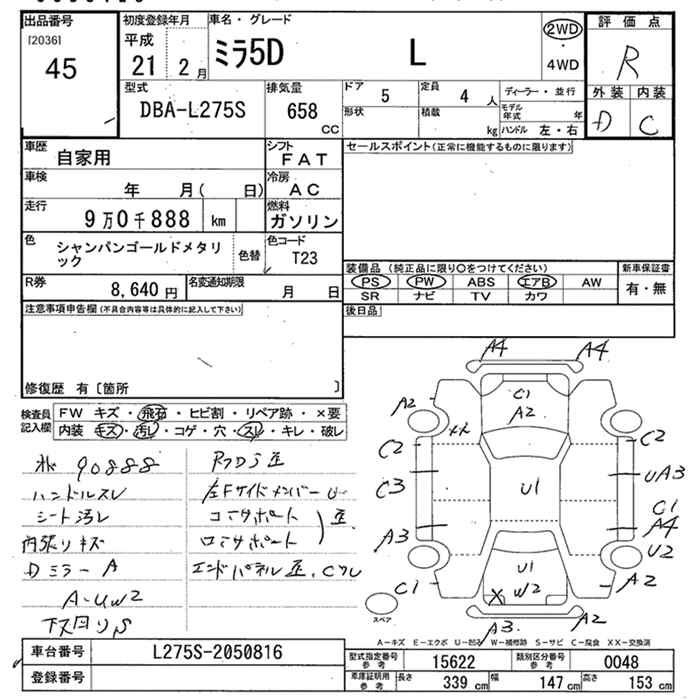 出品番号
[2036]
45
初度登録年月
平成
21 2 月
車名・グレード
ミラ5D L
2WD
4WD
評価点
R
外装 内装
D C
型式
DBA-L275S
排気量
658
CC
ドア 5
形状
定員 4 人
積載 kg
ディーラー・並行
モデル年式 年
ハンドル 左・右
車歴
自家用
シフト
FAT
セールスポイント(正常に機能するものに限ります)
車検
年 月( 日)
冷房
AC
走行
9万0千888 km
燃料
ガソリン
色
シャンパンゴールドメタリック
色替
色コード
T23
装備品(純正品に限り○をつけてください)
新車保証書
PS PW ABS エアB AW
有・無
SR ナビ TV カワ
R券
8,640 円
名変通知期限
月 日
後日品
注意事項申告欄(不具合内容等は具体的に記入して下さい)
修復歴 有〔箇所 〕
検査員記入欄
FW キズ・飛石・ヒビ割・リペア跡・×要
内装 キズ・汚レ・コゲ・穴・スレ・キレ・破レ
90888
ハンドルスレ
シート汚レ
内張りキズ
DミラーA
A-UW2
左Fサイドメンバー
コアサポート
ロアサポート
エンドパネル
A4 A4
C1
A2
A2
××
C2
C2
C3
U1
UA3
C1
A4
A3
U2
C1
U1
A2
X W2
A3
A2
スペア
A-キズ E-エクボ U-凹ミ W-補修跡 S-サビ C-腐食 XX-交換済
車台番号
L275S-2050816
登録番号
型式指定番号 参考
15622
類別区分番号 参考
0048
車庫証明用 参考
長さ 339 cm
幅 147 cm
高さ 153 cm